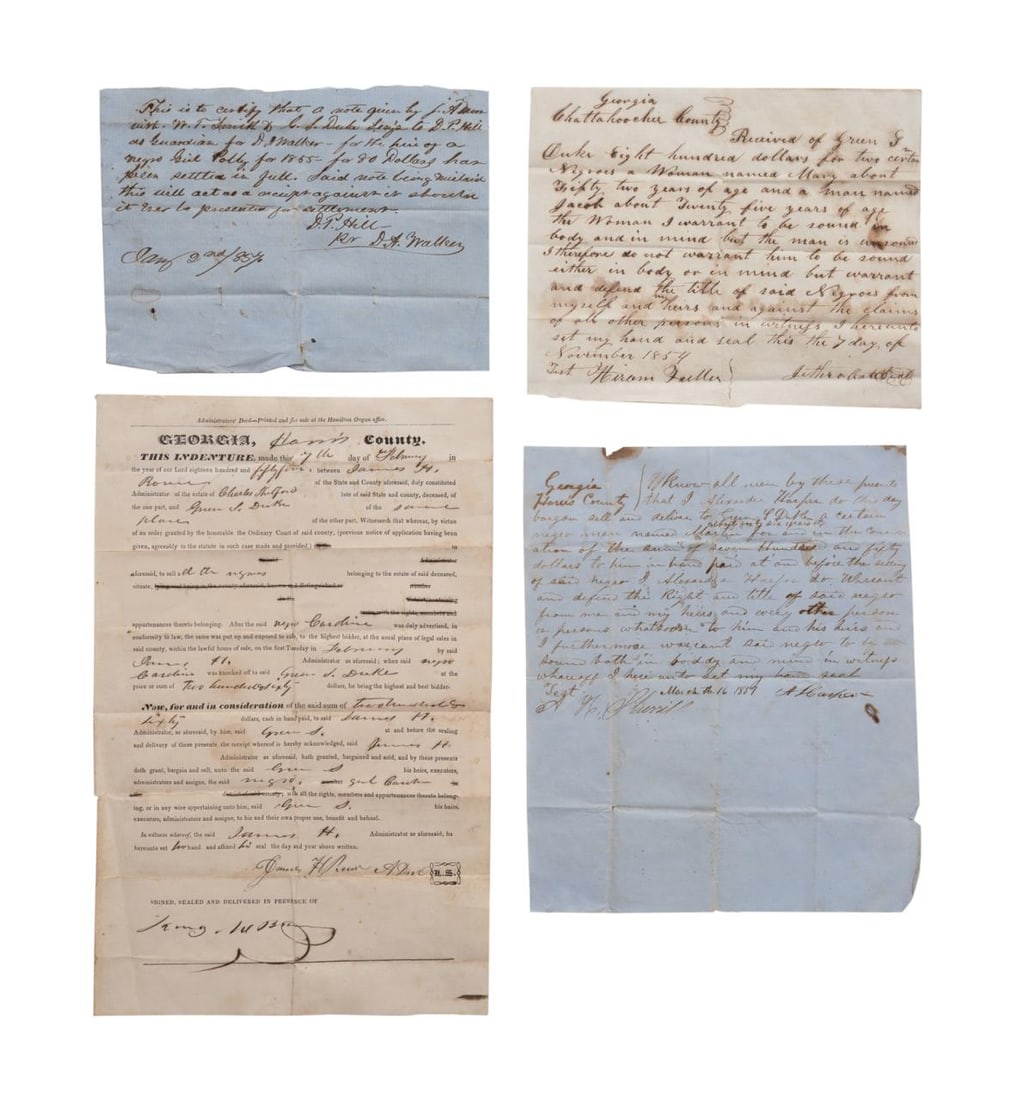 This is to certify that a note given by
W. T. Smith & G. S. Duke to D. P. Hill
as Guardian for D. A Walker - for the hire of a
negro Girl Polly for 1855 - for 80 Dollars has
been settled in full. Said note being mislaid
this will act as a receipt against it should
it Ever be presented for settlement.
D. P. Hill
D. A. Walker
Jany 2nd
Georgia
Chattahoochee County
Received of Green S
Duke Eight hundred dollars for two certain
Negroes a Woman named Mary about
Fifty two years of age and a man named
Jacob about Twenty five years of age
the Woman I warrant to be sound in
body and in mind but the man is unsound
I therefore do not warrant him to be sound
either in body or in mind but warrant
and defend the title of said Negroes from
myself and my heirs and against the claims
of all other persons in witness I hereunto
set my hand and seal this the 7 day of
November 1859
Test Hiram Fuller
Administrators' Deed—Printed and for sale at the Hamilton Organ office.
GEORGIA, Harris County.
THIS INDENTURE, made this 7th day of February in
the year of our Lord eighteen hundred and fifty five, between James H.
of the State and County aforesaid, duly constituted
Administrator of the estate of Charles late of said State and county, deceased, of
the one part, and Green S. Duke of the same
place of the other part, Witnesseth that whereas, by virtue
of an order granted by the honorable the Ordinary Court of said county, (previous notice of application having been
given, agreeably to the statute in such case made and provided,) to
Administrator
aforesaid, to sell all the negros belonging to the estate of said deceased,
situate, lying and being in the county aforesaid, known and distinguished as
with all the rights, members and
appurtenances thereto belonging. After the said negro Caroline was duly advertised, in
conformity to law, the same was put up and exposed to sale, to the highest bidder, at the usual place of legal sales in
said county, within the lawful hours of sale, on the first Tuesday in February by said
James H. Administrator as aforesaid; when said negro
Caroline was knocked off to said Green S. Duke at the
price or sum of two hundred & sixty dollars, he being the highest and best bidder.
Now, for and in consideration of the said sum of two hundred &
sixty dollars, cash in hand paid, to said James H.
Administrator, as aforesaid, by him, said Green S. at and before the sealing
and delivery of these presents, the receipt whereof is hereby acknowledged, said James H.
Administrator as aforesaid, hath granted, bargained and sold, and by these presents
doth grant, bargain and sell, unto the said Green S his heirs, executors,
administrators and assigns, the said negro girl
with all the rights, members and appurtenances thereto belong-
ing, or in any wise appertaining unto him, said Green S. his heirs,
executors, administrators and assigns, to his and their own proper use, benefit and behoof.
In witness whereof, the said James H. Administrator as aforesaid, has
hereunto set his hand and affixed his seal the day and year above written.
James H L.S.
SIGNED, SEALED AND DELIVERED IN PRESENCE OF
Georgia
Harris County
Know all men by these presents
that I Alexander Harper do this day
bargan sell and deliver to Green S Duke a certain
negro man named for in the consider
ation of the sum of seven Hundred and fifty
dollars to him in hand paid at and before the selling
of said negro I Alexander Harper do Warrant
and defend the Right and title of said negro
from me and my heirs and every other person
or persons whatsoever to him and his heirs and
I furthermore warrant said negro to be
sound both in boddy and mind in witness
whareoff I here unto set my hand seal
Test March the 16 1859 A Harper